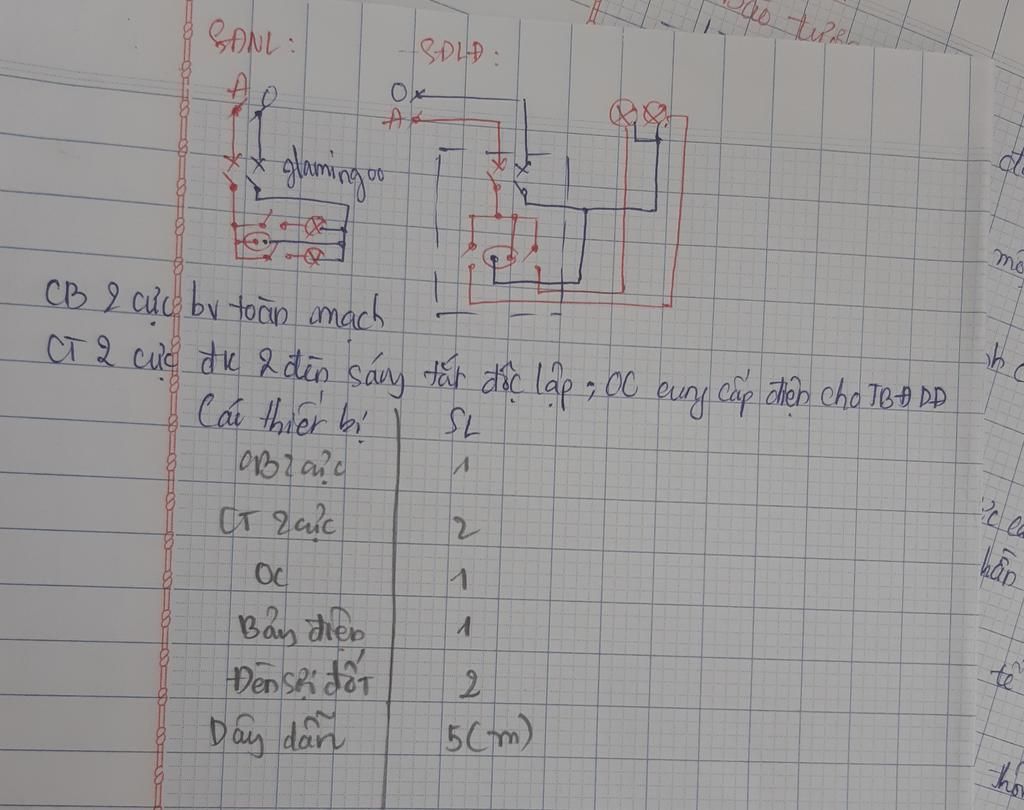 SĐNL: SĐLĐ:
A O O
A
glamingoo
CB 2 cực bv toàn mạch
CT 2 cực đk 2 đèn sáng tắt độc lập; OC cung cấp điện cho TBĐDD
Các thiết bị SL
CB 2 cực 1
CT 2 cực 2
OC 1
Bảng điện 1
Đèn sợi đốt 2
Dây dẫn 5(m)